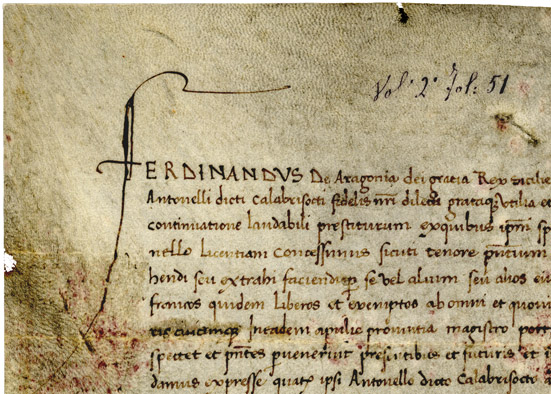 Vol: 2° fol: 51
FERDINANDVS De Aragonia dei gratia Rex Sicilie
Antonelli dicti Calabrisocti fidelis nr̃i dilecti grataq; utilia et
continuatione laudabili prestiturum exquibus ip̃m sp
nello licentiam concessimus sicuti tenore pñtium
hendi seu extrahi faciendi per se vel alium seu alios
francos quidem liberos et exemptos ab omni et quovi
cuicumq; Intradem apulie provintia magistro port
spectet et pñtes pvenerint presentibus et futuris et
damus expresse quatꝫ ipsi Antonello dicto Calabrisocto